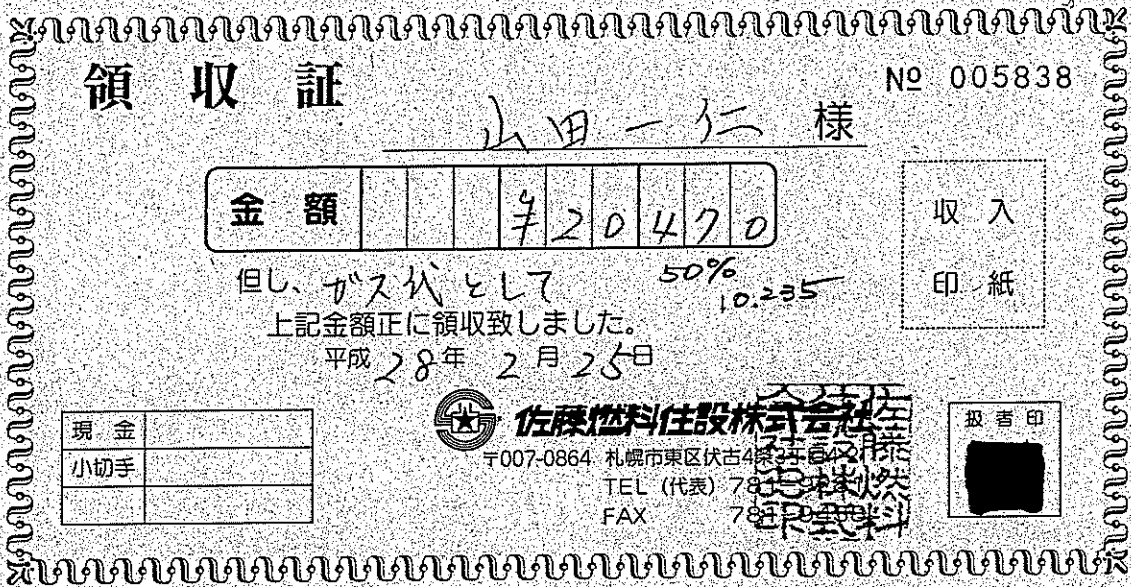 領収証
№ 005838
山田一仁 様
金額 ¥20470
但し、ガス代として
50%
10.235
上記金額正に領収致しました。
平成28年2月25日
収入
印紙
現金
小切手
佐藤燃料住設株式会社
〒007-0864 札幌市東区伏古4条3丁目4
TEL (代表) 781
FAX 781
扱者印